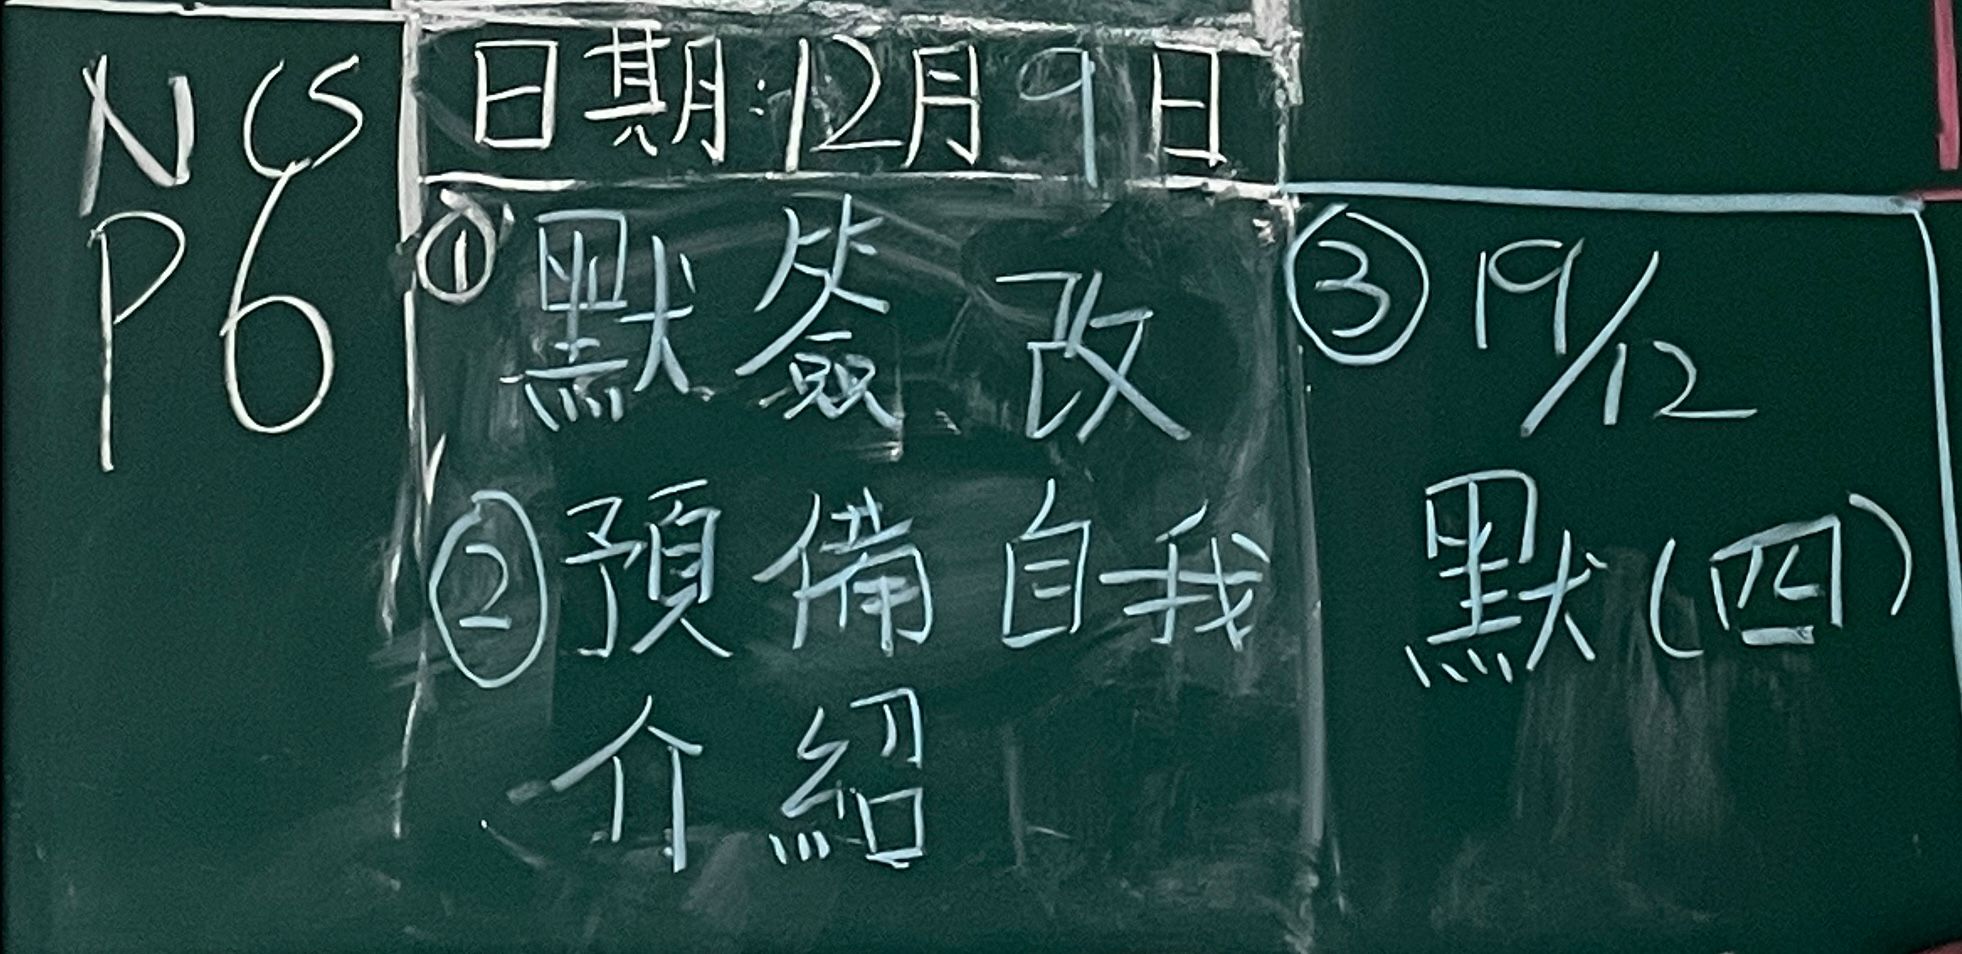 NCS
P6
日期:12月9日
① 默簽改
② 預備自我
介紹
③ 19/12
默(四)